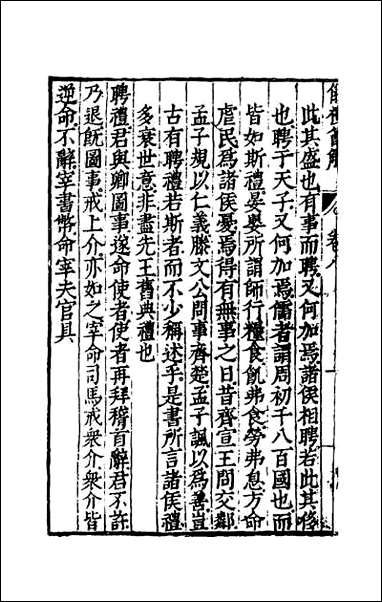 此其盛也有事而聘又何加焉諸侯相聘若此其修
也聘于天子又何加焉儒者謂周初千八百國也而
皆如斯禮晏嬰所謂師行糧食飢弗食勞弗息方命
虐民為諸侯憂焉得有無事之日昔齊宣王問交鄰
孟子規以仁義滕文公問事齊楚孟子諷以為善豈
古有聘禮若斯者而不少稱述乎是書所言諸侯禮
多衰世意非盡先王舊典禮也
聘禮君與卿圖事遂命使者使者再拜稽首辭君不許
乃退既圖事戒上介亦如之宰命司馬戒衆介衆介皆
逆命不辭宰書幣命宰夫官具